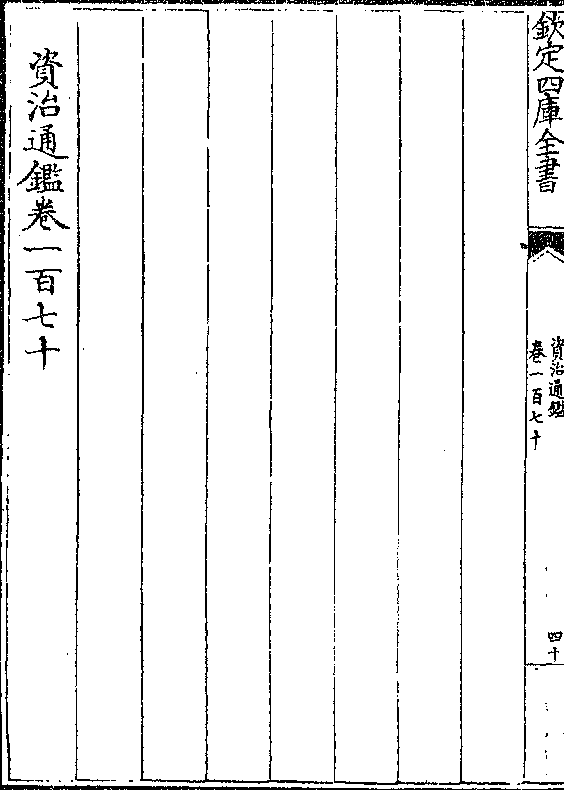 欽定四庫全書
資治通鑑
卷一百七十
四十
資治通鑑卷一百七十